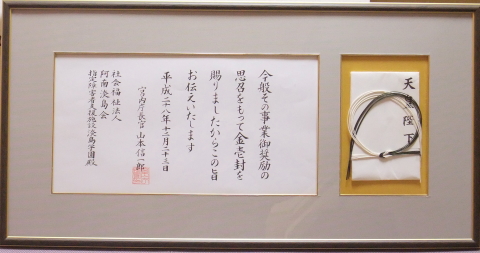 今般その事業御奨励の
思召をもって金壱封を
賜りましたからこの旨
お伝えいたします
平成二十八年十二月二十三日
宮内庁長官 山本信一郎
社会福祉法人
阿南淡島会
指定障害者支援施設淡島学園殿
天皇陛下